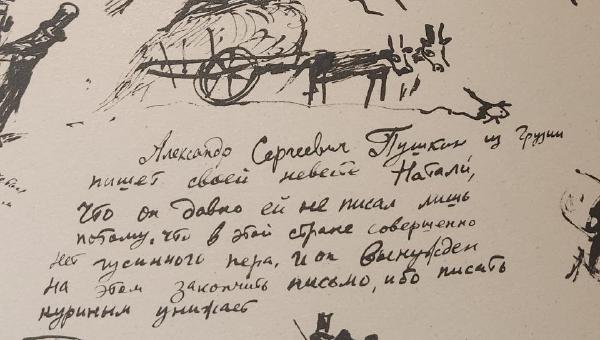 Александр Сергеевич Пушкин из Грузии
пишет своей невесте Натали,
что он давно ей не писал лишь
потому, что в этой стране совершенно
нет гусинного пера, и он вынужден
на этом закончить письмо, ибо писать
куриным унижает